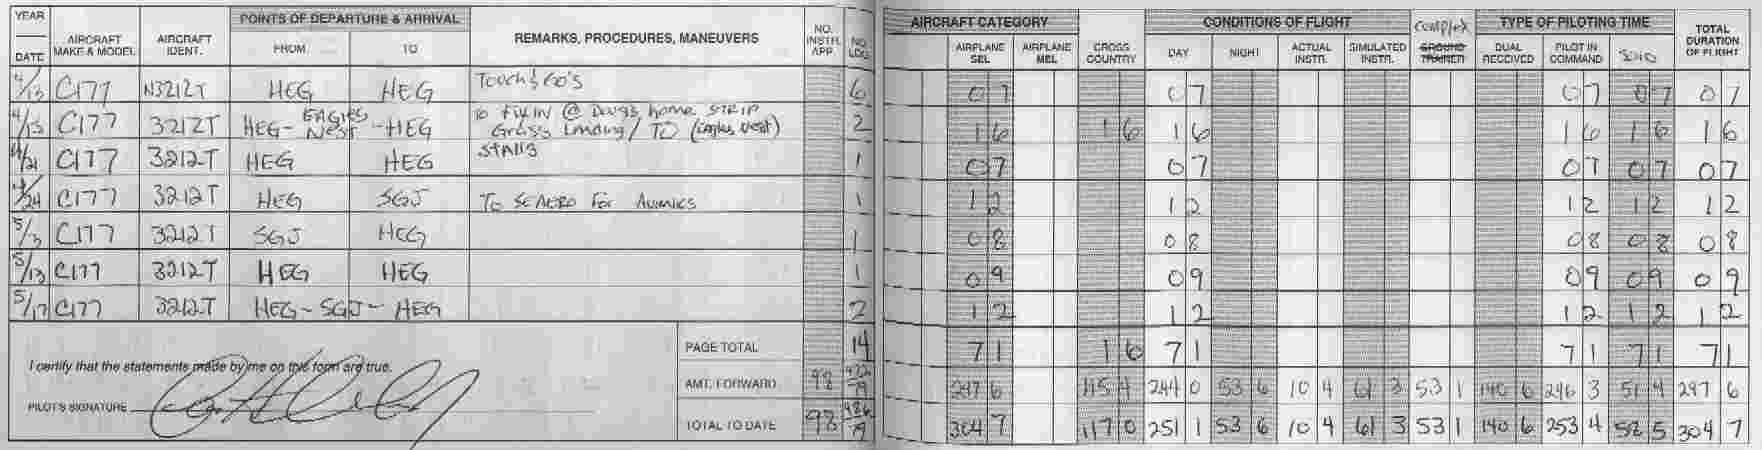 YEAR DATE AIRCRAFT MAKE & MODEL AIRCRAFT IDENT. POINTS OF DEPARTURE & ARRIVAL FROM TO REMARKS, PROCEDURES, MANEUVERS NO. INSTR. APP. NO. LDG. AIRCRAFT CATEGORY AIRPLANE SEL AIRPLANE MEL CROSS COUNTRY CONDITIONS OF FLIGHT DAY NIGHT ACTUAL INSTR. SIMULATED INSTR. Complex GROUND TRAINER TYPE OF PILOTING TIME DUAL RECEIVED PILOT IN COMMAND SOLO TOTAL DURATION OF FLIGHT
4/13 C177 N3212T HEG HEG Touch & Go's 6 0 7 0 7 0 7 0 7 0 7
4/13 C177 3212T HEG - EAGLES Nest - HEG To FLY IN @ Doug's home STRIP Grass Landing / TO (Eagles Nest) 2 1 6 1 6 1 6 1 6 1 6 1 6
4/21 C177 3212T HEG HEG STALLS 1 0 7 0 7 0 7 0 7 0 7
4/24 C177 3212T HEG SGJ To SEAERO For Avionics 1 1 2 1 2 1 2 1 2 1 2
5/3 C177 3212T SGJ HEG 1 0 8 0 8 0 8 0 8 0 8
5/13 C177 3212T HEG HEG 1 0 9 0 9 0 9 0 9 0 9
5/17 C177 3212T HEG - SGJ - HEG 2 1 2 1 2 1 2 1 2 1 2
I certify that the statements made by me on this form are true.
PILOT'S SIGNATURE
PAGE TOTAL 14 7 1 1 6 7 1 7 1 7 1 7 1
AMT. FORWARD 98 472/79 297 6 115 4 244 0 53 6 10 4 61 3 53 1 140 6 246 3 51 4 297 6
TOTAL TO DATE 98 486/79 304 7 117 0 251 1 53 6 10 4 61 3 53 1 140 6 253 4 58 5 304 7